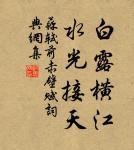 白露橫江
水光接天
蘇軾前赤壁賦詞
典網集